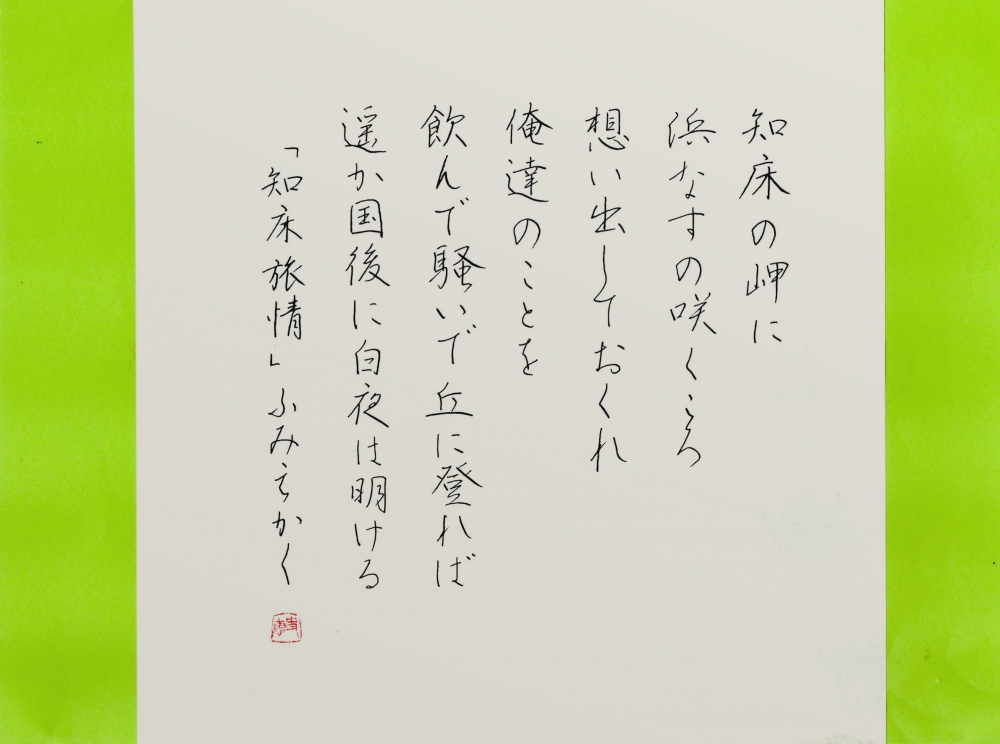 知床の岬に
浜なすの咲くころ
想い出しておくれ
俺達のことを
飲んで騒いで丘に登れば
遥か国後に白夜は明ける
「知床旅情」ふみえかく